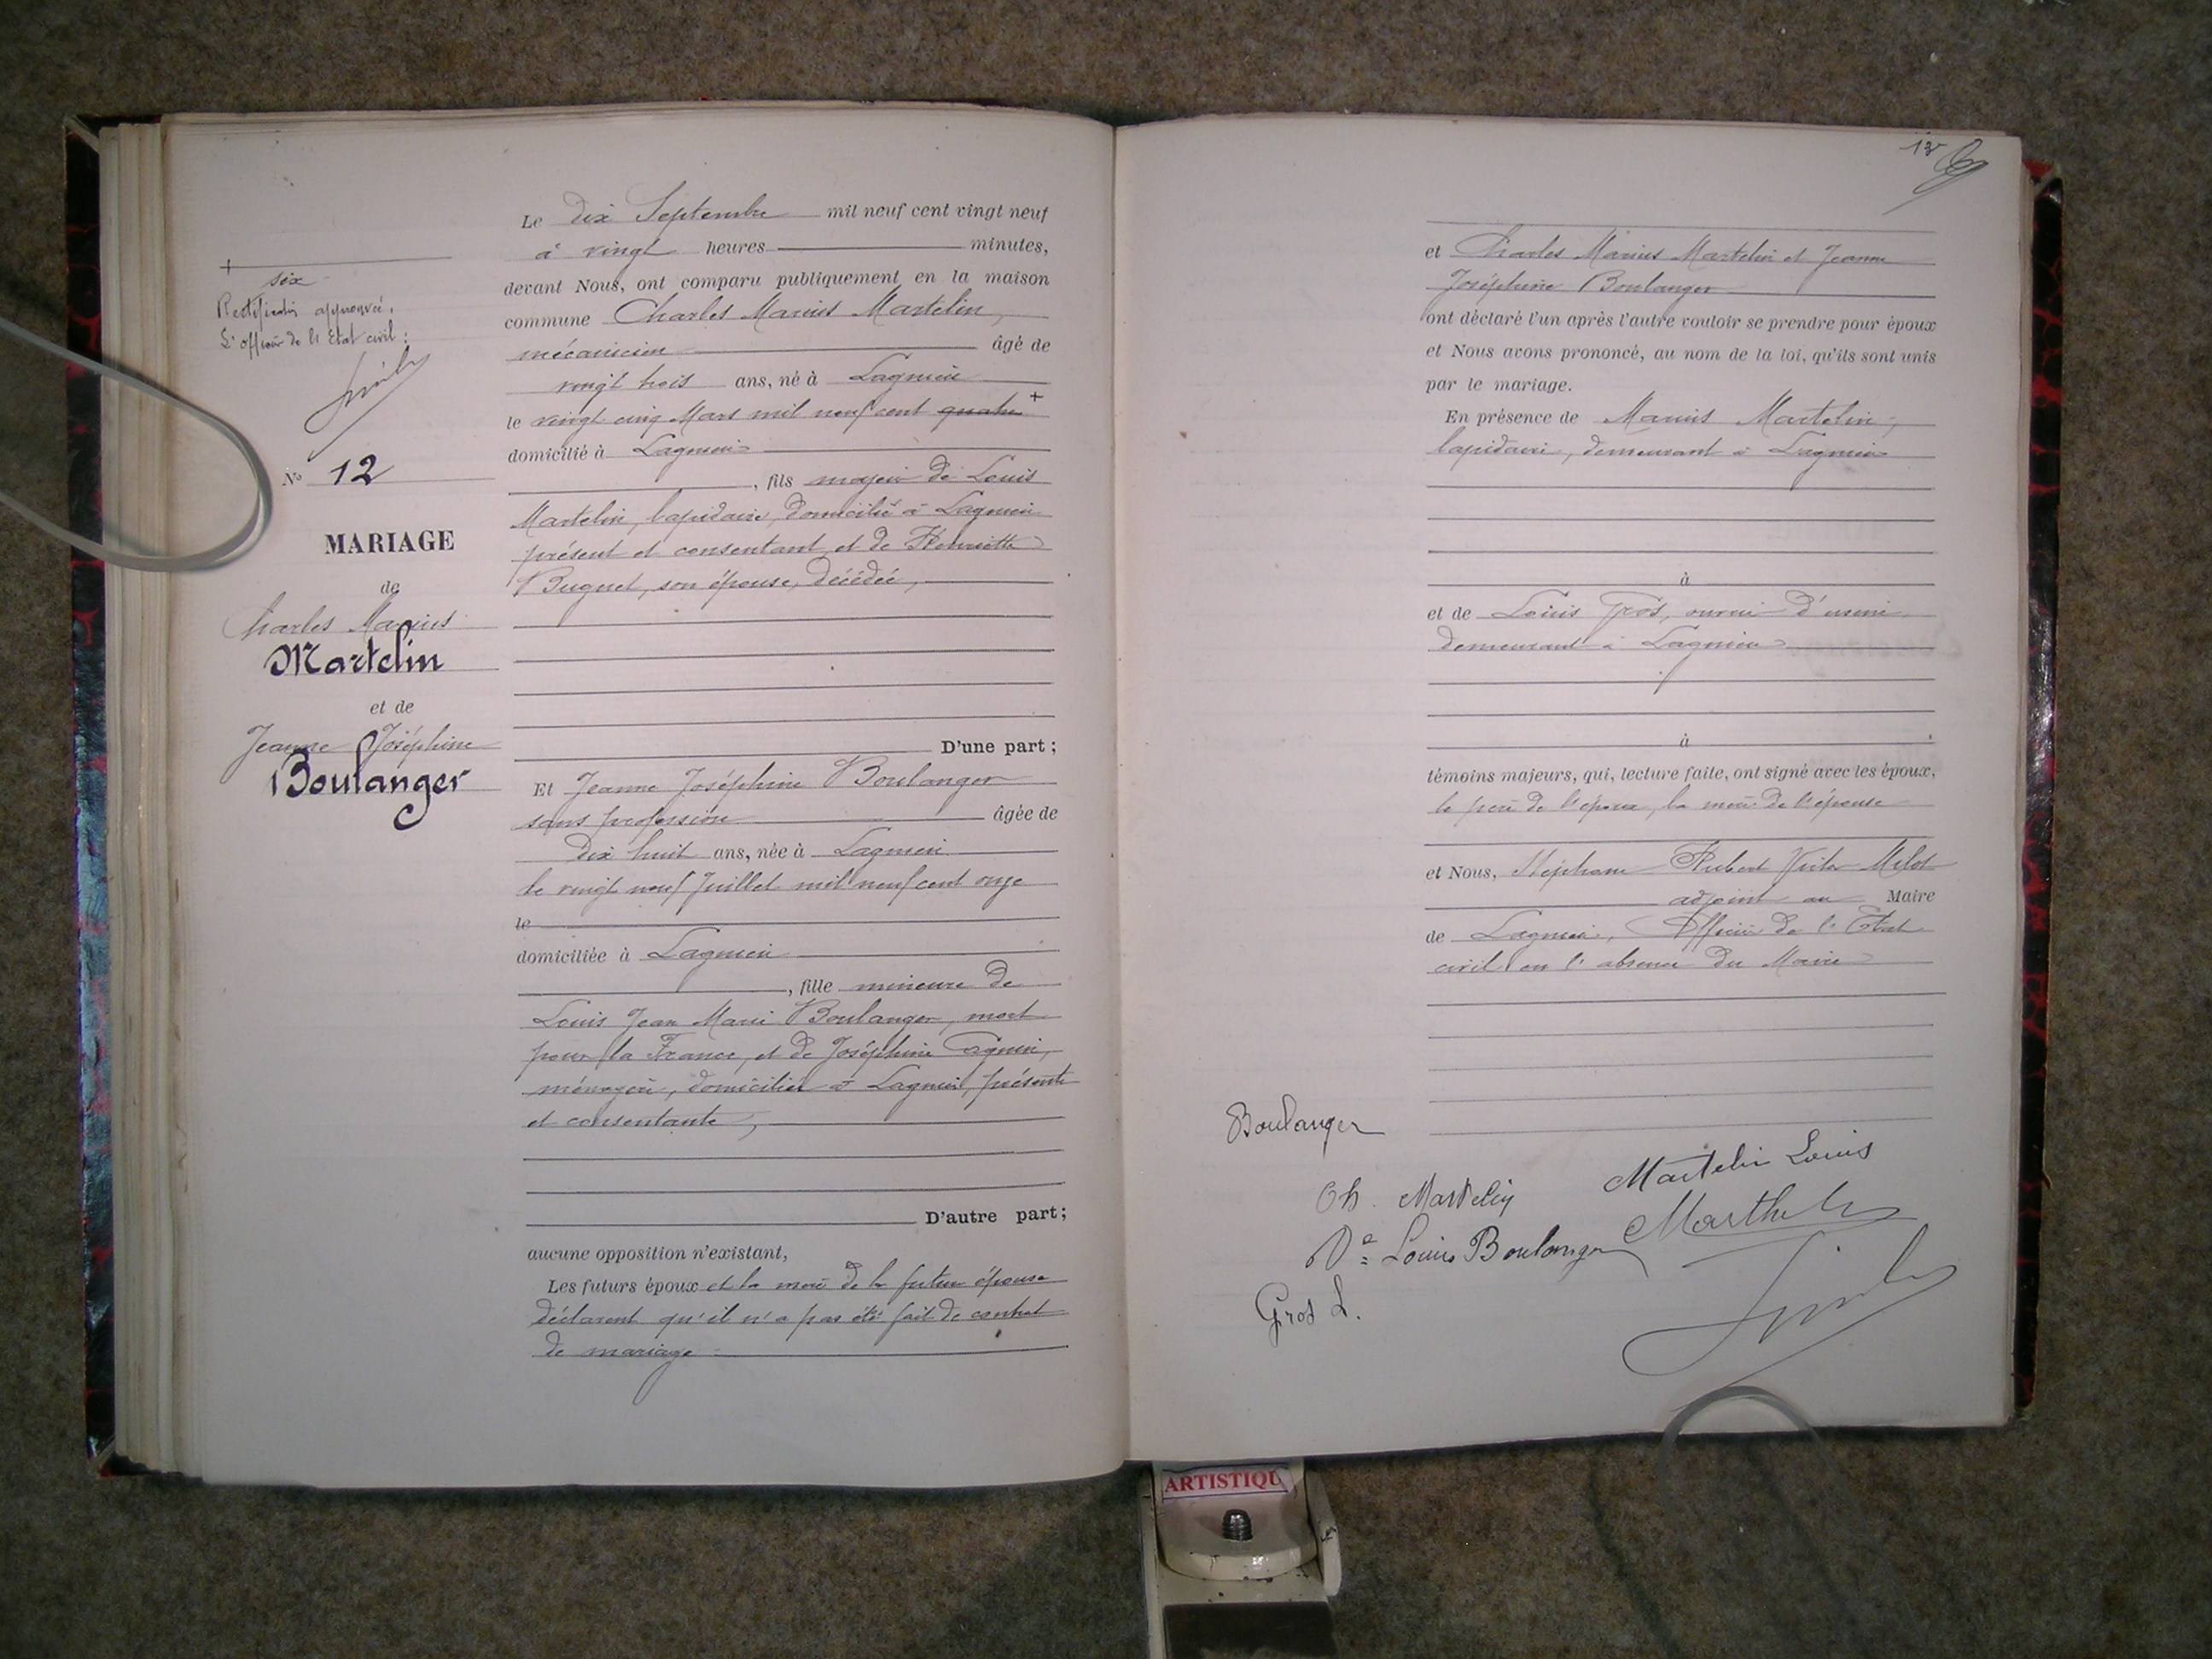 +
six
Rectification approuvée,
L'officier de l'Etat civil :
No 12
MARIAGE
de
Charles Marius
Martelin
et de
Jeanne Joséphine
Boulanger
Le dix Septembre mil neuf cent vingt neuf
à vingt heures minutes,
devant Nous, ont comparu publiquement en la maison
commune Charles Marius Martelin,
mécanicien âgé de
vingt trois ans, né à Lagnieu
le vingt cinq Mars mil neuf cent quatre +
domicilié à Lagnieu
, fils majeur de Louis
Martelin, lapidaire, domicilié à Lagnieu
présent et consentant et de Henriette
Buguet, son épouse, décédée,
D'une part ;
Et Jeanne Joséphine Boulanger
sans profession âgée de
dix huit ans, née à Lagnieu
le vingt neuf Juillet mil neuf cent onze
le
domiciliée à Lagnieu
, fille mineure de
Louis Jean Marie Boulanger, mort
pour la France, et de Joséphine
ménagère, domiciliée à Lagnieu, présente
et consentante,
D'autre part ;
aucune opposition n'existant,
Les futurs époux et la mère de la future épouse
déclarent qu'il n'a pas été fait de contrat
de mariage
13
et Charles Marius Martelin et Jeanne
Joséphine Boulanger
ont déclaré l'un après l'autre vouloir se prendre pour époux
et Nous avons prononcé, au nom de la loi, qu'ils sont unis
par le mariage.
En présence de Marius Martelin,
lapidaire, demeurant à Lagnieu
à
et de Louis Gros, ouvrier d'usine
demeurant à Lagnieu
à
témoins majeurs, qui, lecture faite, ont signé avec les époux,
le père de l'époux, la mère de l'épouse
et Nous, Stéphane Hubert Victor Milot
adjoint au Maire
de Lagnieu, Officier de l'Etat
civil en l'absence du Maire
Boulanger
Ch. Martelin
Martelin Louis
Ve Louis Boulanger
Gros L.
ARTISTIQU